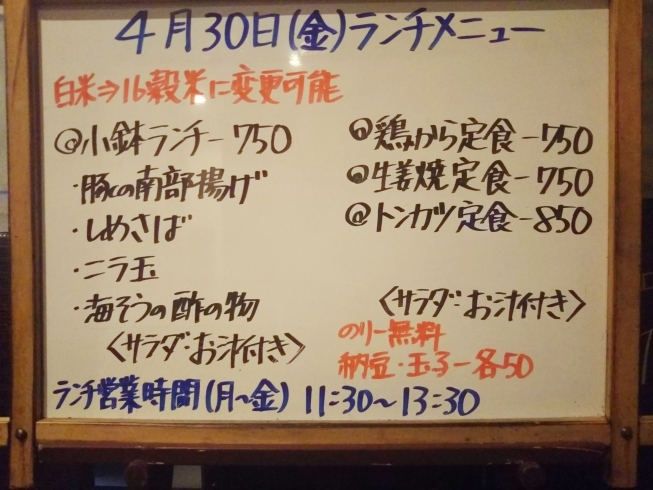 4月30日(金)ランチメニュー
白米⇒16穀米に変更可能
@小鉢ランチー750
・豚の南部揚げ
・しめさば
・ニラ玉
・海そうの酢の物
〈サラダ・お汁付き〉
@鶏から定食ー750
@生姜焼定食ー750
@トンカツ定食ー850
〈サラダ・お汁付き〉
のりー無料
納豆・玉子ー各50
ランチ営業時間(月〜金) 11:30〜13:30